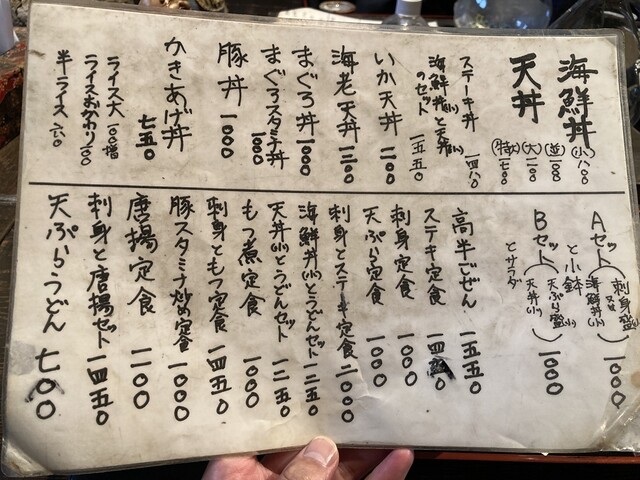 海鮮丼
天丼
(小)八〇〇
(並)一〇〇〇
(大)一二〇〇
(特大)一七〇〇
ステーキ丼 一四八〇
海鮮丼(小)と天丼(小)
のセット 一五五〇
いか天丼 一二〇〇
海老天丼 一三〇〇
まぐろ丼 1000
まぐろスタミナ丼 1000
豚丼 1000
かきあげ丼 七五〇
ライス大 一〇〇増
ライスおかわり 二〇〇
半ライス 六〇
Aセット
刺身盛(小)
又は
海鮮丼(小)
と小鉢
1000
Bセット
天ぷら盛(小)
天丼(小)
とサラダ
1000
高半ごぜん 一五五〇
ステーキ定食
刺身定食 1000
天ぷら定食 1000
刺身とステーキ定食 二〇〇〇
海鮮丼(小)とうどんセット 一二五〇
天丼(小)とうどんセット 一二五〇
もつ煮定食 1000
刺身ともつ定食 一四五〇
豚スタミナ炒め定食 1000
唐揚定食 一一〇〇
刺身と唐揚セット 一四五〇
天ぷらうどん 七〇〇